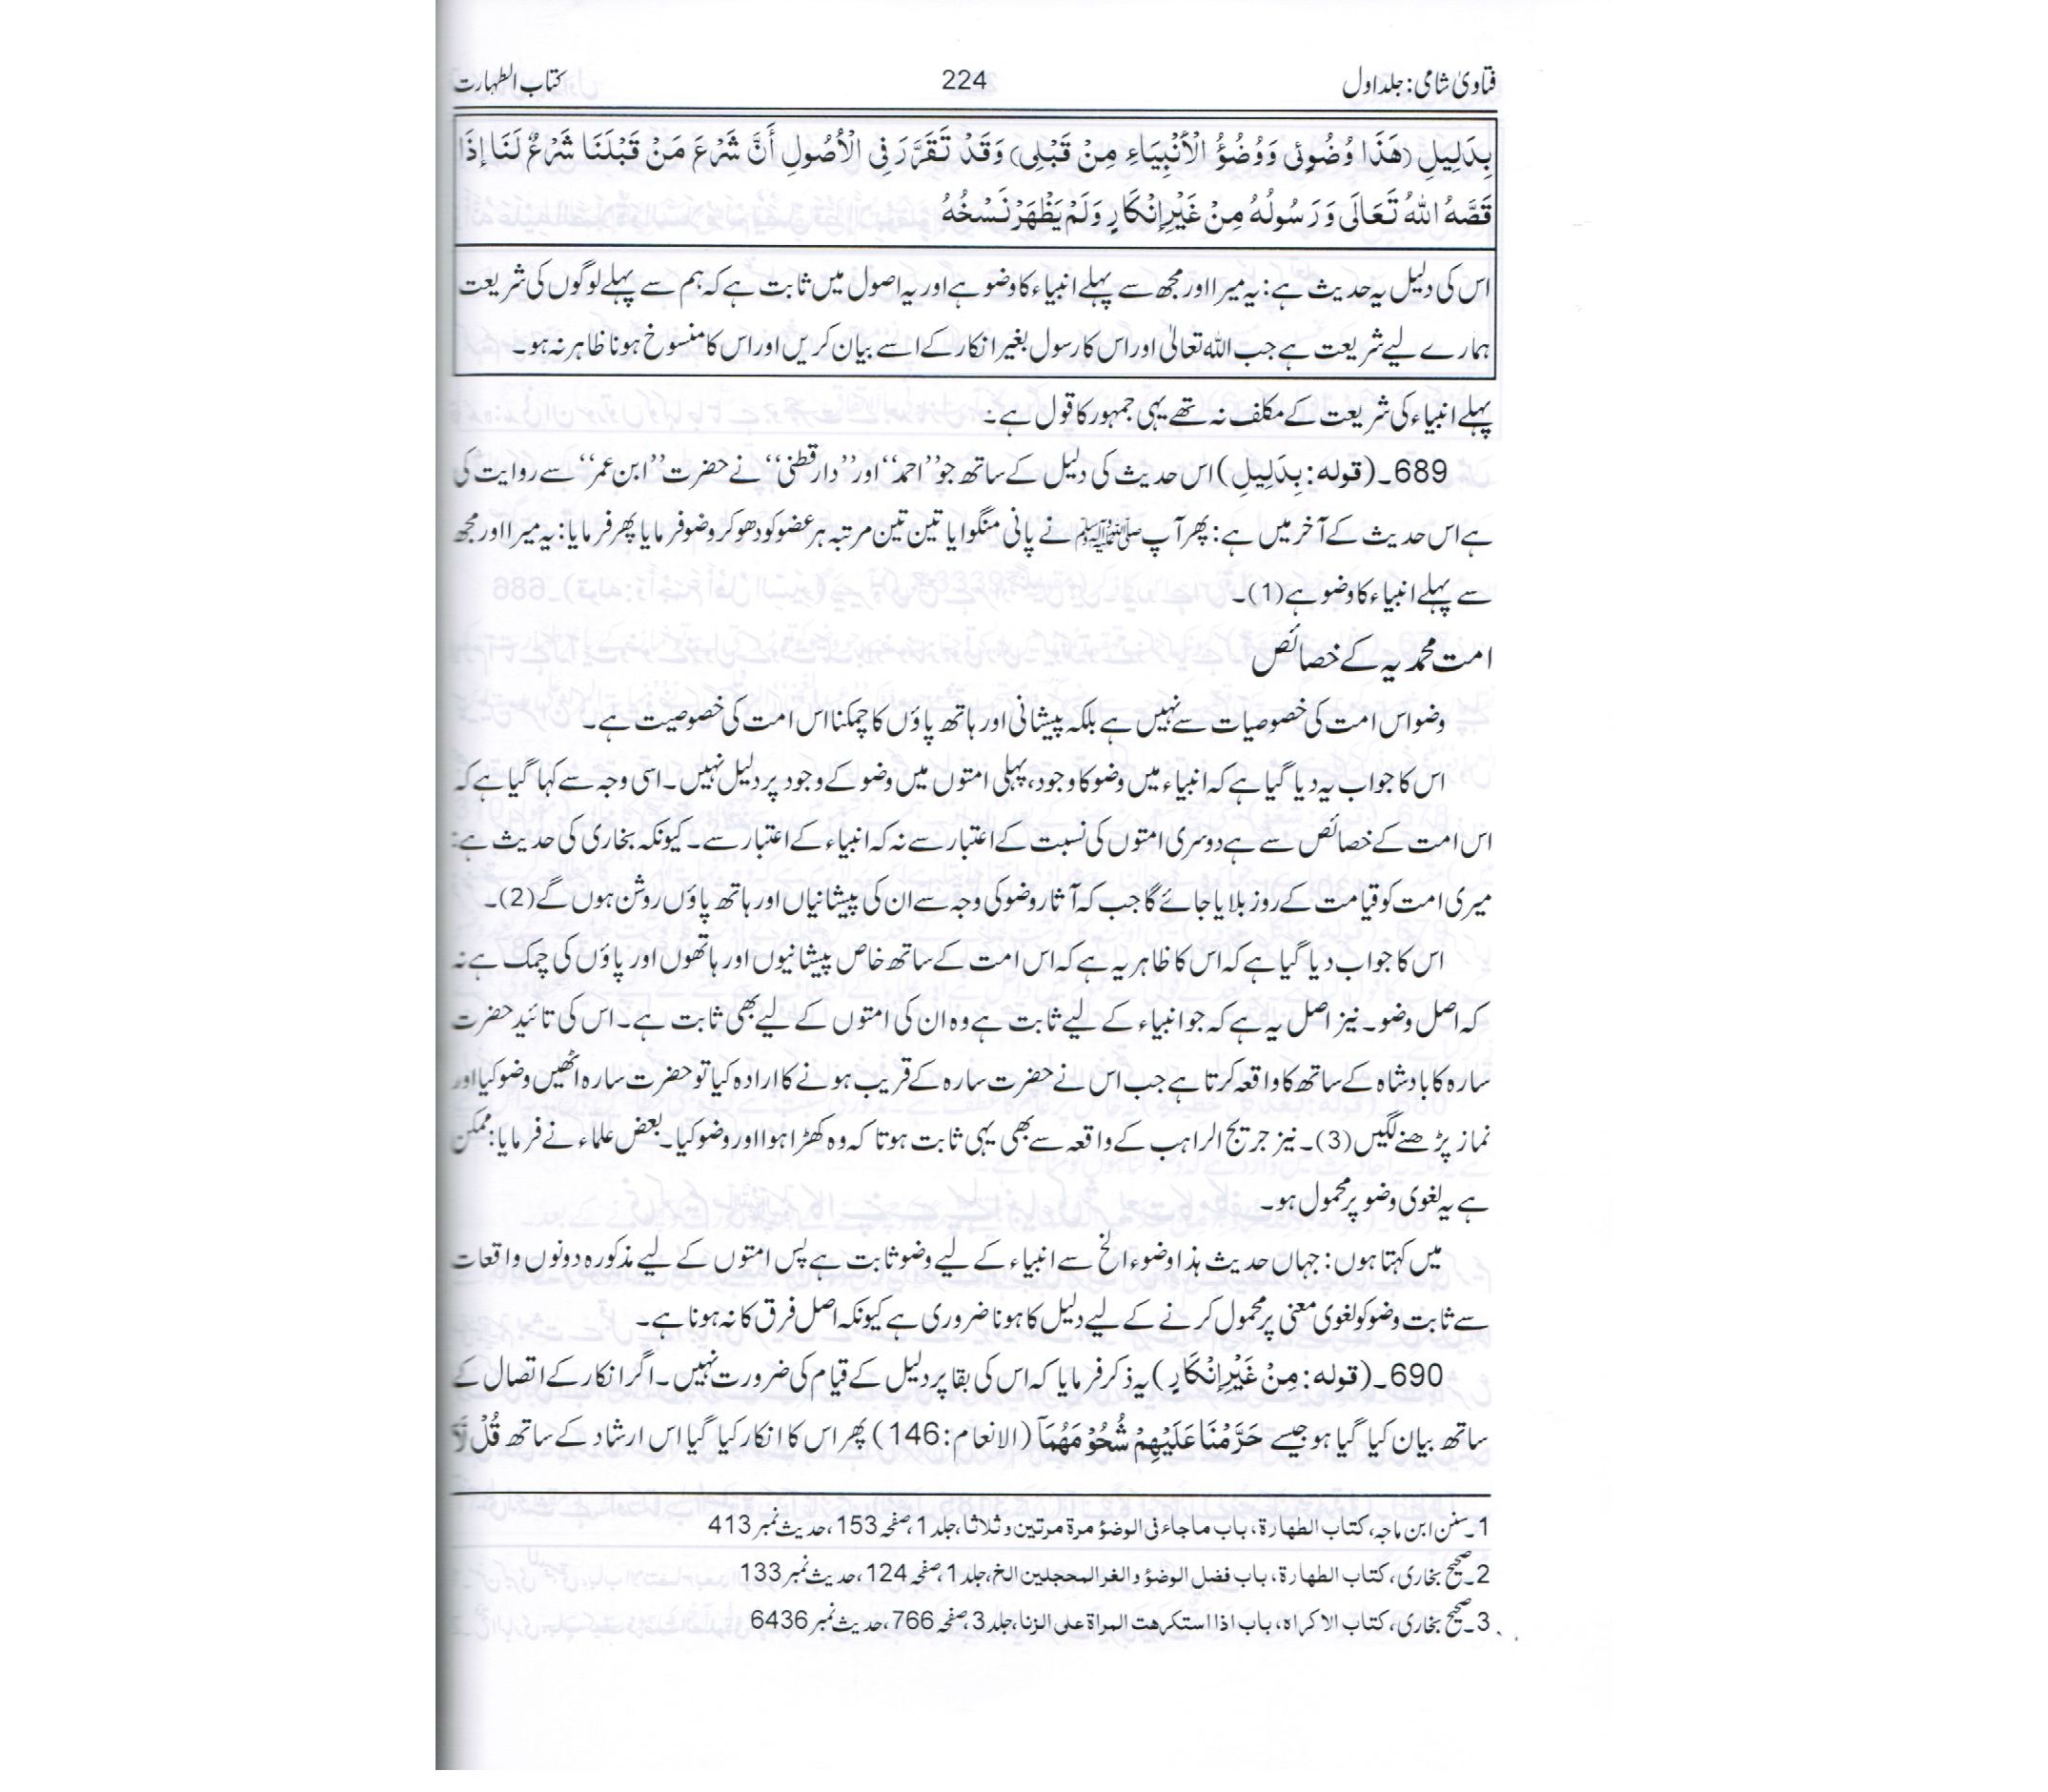 فتاویٰ شامی: جلد اول 224 کتاب الطہارت
بِدَلِيلِ (هَذَا وُضُوئِی وَوُضُؤُ الْأَنْبِيَاءِ مِنْ قَبْلِی) وَقَدْ تَقَرَّرَ فِی الْأُصُولِ أَنَّ شَرْعَ مَنْ قَبْلَنَا شَرْعٌ لَنَا إذَا
قَصَّهُ اللهُ تَعَالَى وَرَسُولُهُ مِنْ غَيْرِ إِنْكَارٍ وَلَمْ يَظْهَرْ نَسْخُهُ
اس کی دلیل یہ حدیث ہے: یہ میرا اور مجھ سے پہلے انبیاء کا وضو ہے اور یہ اصول میں ثابت ہے کہ ہم سے پہلے لوگوں کی شریعت
ہمارے لیے شریعت ہے جب اللہ تعالیٰ اور اس کا رسول بغیر انکار کے اسے بیان کریں اور اس کا منسوخ ہونا ظاہر نہ ہو۔
پہلے انبیاء کی شریعت کے مکلف نہ تھے یہی جمہور کا قول ہے۔
689۔ (قوله: بِدَلِيلِ) اس حدیث کی دلیل کے ساتھ جو ”احمد“ اور ”دار قطنی“ نے حضرت ”ابن عمر“ سے روایت کی
ہے اس حدیث کے آخر میں ہے: پھر آپ ﷺ نے پانی منگوایا تین تین مرتبہ ہر عضو کو دھو کر وضو فرمایا پھر فرمایا: یہ میرا اور مجھ
سے پہلے انبیاء کا وضو ہے (1)۔
امت محمدیہ کے خصائص
وضو اس امت کی خصوصیات سے نہیں ہے بلکہ پیشانی اور ہاتھ پاؤں کا چمکنا اس امت کی خصوصیت ہے۔
اس کا جواب یہ دیا گیا ہے کہ انبیاء میں وضو کا وجود، پہلی امتوں میں وضو کے وجود پر دلیل نہیں۔ اسی وجہ سے کہا گیا ہے کہ
اس امت کے خصائص سے ہے دوسری امتوں کی نسبت کے اعتبار سے نہ کہ انبیاء کے اعتبار سے۔ کیونکہ بخاری کی حدیث ہے:
میری امت کو قیامت کے روز بلایا جائے گا جب کہ آثار وضو کی وجہ سے ان کی پیشانیاں اور ہاتھ پاؤں روشن ہوں گے (2)۔
اس کا جواب دیا گیا ہے کہ اس کا ظاہر یہ ہے کہ اس امت کے ساتھ خاص پیشانیوں اور ہاتھوں اور پاؤں کی چمک ہے نہ
کہ اصل وضو۔ نیز اصل یہ ہے کہ جو انبیاء کے لیے ثابت ہے وہ ان کی امتوں کے لیے بھی ثابت ہے۔ اس کی تائید حضرت
سارہ کا بادشاہ کے ساتھ کا واقعہ کرتا ہے جب اس نے حضرت سارہ کے قریب ہونے کا ارادہ کیا تو حضرت سارہ اٹھیں وضو کیا اور
نماز پڑھنے لگیں (3)۔ نیز جریج الراہب کے واقعہ سے بھی یہی ثابت ہوتا کہ وہ کھڑا ہوا اور وضو کیا۔ بعض علماء نے فرمایا: ممکن
ہے یہ لغوی وضو پر محمول ہو۔
میں کہتا ہوں: جہاں حدیث ہذا وضوء الخ سے انبیاء کے لیے وضو ثابت ہے پس امتوں کے لیے مذکورہ دونوں واقعات
سے ثابت وضو کو لغوی معنی پر محمول کرنے کے لیے دلیل کا ہونا ضروری ہے کیونکہ اصل فرق کا نہ ہونا ہے۔
690۔ (قوله: مِنْ غَيْرِ إِنْكَارٍ) یہ ذکر فرمایا کہ اس کی بقا پر دلیل کے قیام کی ضرورت نہیں۔ اگر انکار کے اتصال کے
ساتھ بیان کیا گیا ہو جیسے حَرَّمْنَا عَلَيْهِمْ شُحُوْمَهُمَآ (الانعام: 146) پھر اس کا انکار کیا گیا اس ارشاد کے ساتھ قُلْ لَّآ
1۔ سنن ابن ماجہ، کتاب الطهارة، باب ماجاء فی الوضؤ مرة مرتین و ثلاثا، جلد 1، صفحہ 153، حدیث نمبر 413
2۔ صحیح بخاری، کتاب الطهارة، باب فضل الوضؤ والغر المحجلین الخ، جلد 1، صفحہ 124، حدیث نمبر 133
3۔ صحیح بخاری، کتاب الاکراہ، باب اذا استکرهت المراة علی الزنا، جلد 3، صفحہ 766، حدیث نمبر 6436